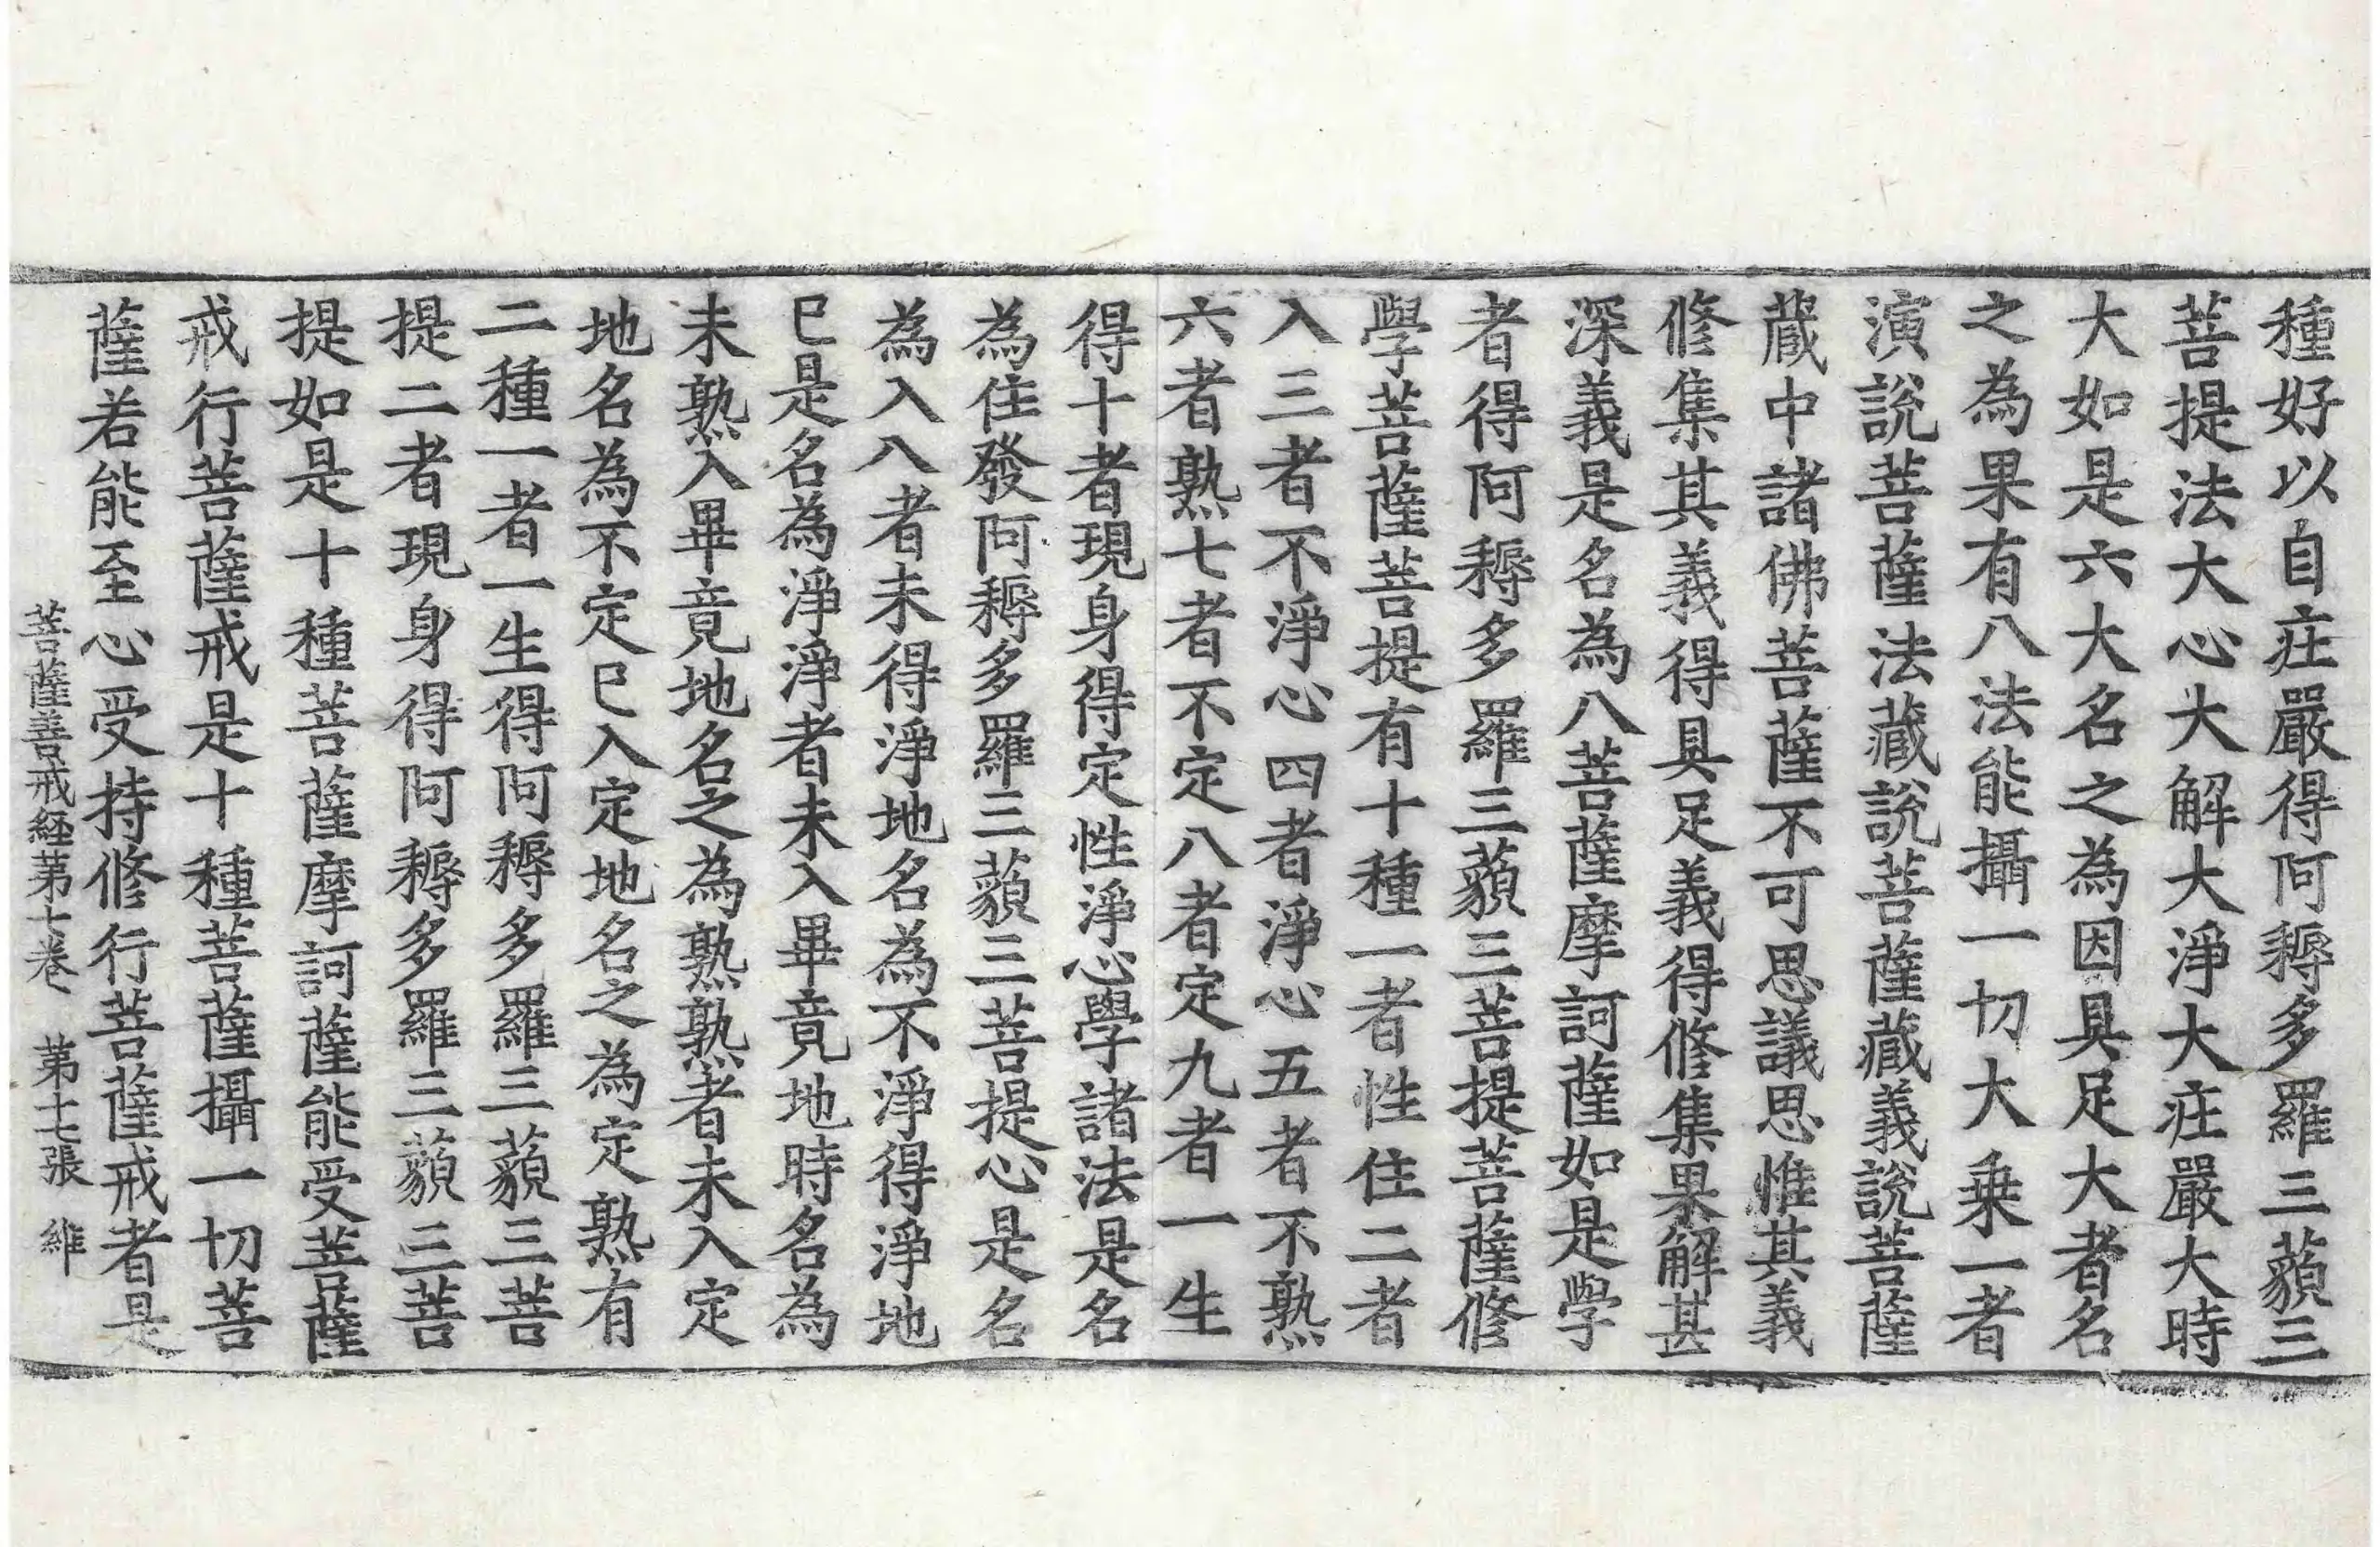 種好以自疘嚴得阿耨多羅三藐三
菩提法大心大解大淨大疘嚴大時
大如是六大名之為因具足大者名
之為果有八法能攝一切大乗一者
演說菩薩法藏說菩薩藏義說菩薩
蔵中諸佛菩薩不可思議思惟其義
修集其義得具足義得修集果解甚
深義是名為八菩薩摩訶薩如是學
者得阿耨多羅三藐三菩提菩薩修
學菩薩菩提有十種一者性住二者
入三者不淨心四者淨心五者不熟
六者熟七者不定八者定九者一生
得十者現身得定性淨心學諸法是名
為住發阿耨多羅三藐三菩提心是名
為入八者未得淨地名為不淨得淨地
巳是名為淨淨者未入畢竟地時名為
未熟入畢竟地名之為熟熟者未入定
地名為不定巳入定地名之為定熟有
二種一者一生得阿耨多羅三藐三菩
提二者現身得阿耨多羅三藐三菩
提如是十種菩薩摩訶薩能受菩薩
戒行菩薩戒是十種菩薩攝一切菩
薩若能至心受持修行菩薩戒者是
菩薩善戒経苐七巻 苐十七張 維